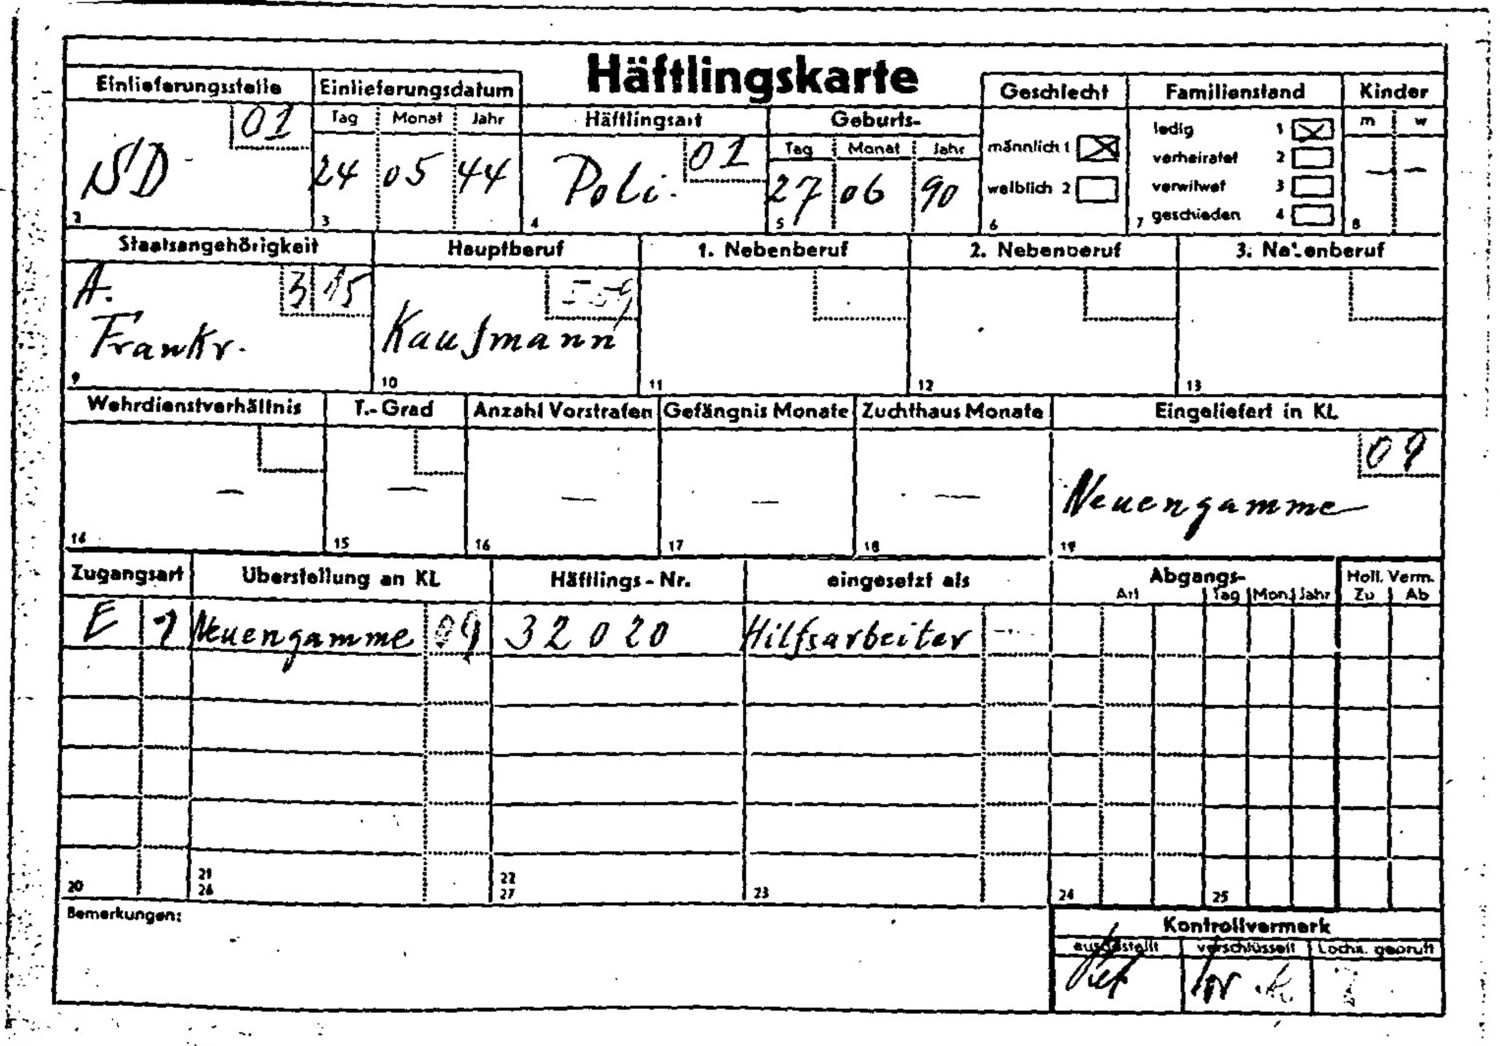 Häftlingskarte
Einlieferungsstelle
01
SD
2
Einlieferungsdatum
Tag Monat Jahr
24 05 44
3
Häftlingsart
01
Poli.
4
Geburts-
Tag Monat Jahr
27 06 90
5
Geschlecht
männlich 1
weiblich 2
6
Familienstand
ledig 1
verheiratet 2
verwitwet 3
geschieden 4
7
Kinder
m w
— —
8
Staatsangehörigkeit
A. 3 15
Frankr.
9
Hauptberuf
Kaufmann
10
1. Nebenberuf
11
2. Nebenberuf
12
3. Nebenberuf
13
Wehrdienstverhältnis
—
14
T.-Grad
—
15
Anzahl Vorstrafen
—
16
Gefängnis Monate
—
17
Zuchthaus Monate
—
18
Eingeliefert in KL
09
Neuengamme
19
Zugangsart Überstellung an KL Häftlings-Nr. eingesetzt als Abgangs- Holl. Verm.
Art Tag Mon. Jahr Zu Ab
E 1 Neuengamme 09 32020 Hilfsarbeiter
20 21 22 23 24 25
26 27
Bemerkungen:
Kontrollvermerk
ausgestellt verschlüsselt Lochk. geprüft